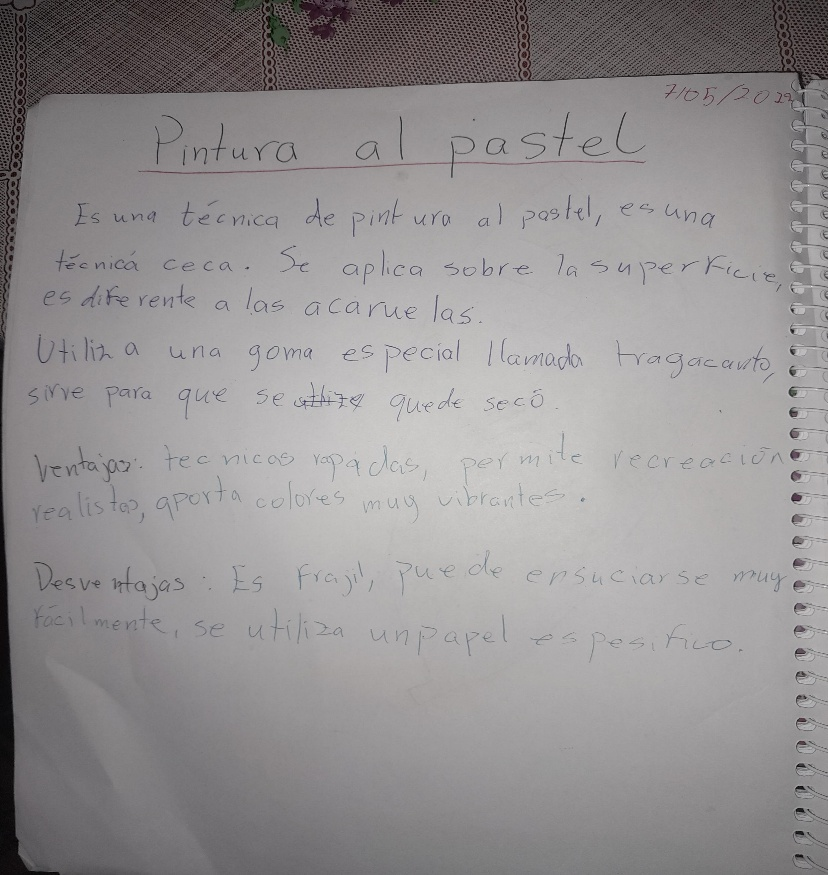 7/05/2022
Pintura al pastel
Es una técnica de pintura al pastel, es una
técnicá ceca. Se aplica sobre la superficie,
es diferente a las acaruelas.
Utiliza una goma especial llamada tragacanto,
sirve para que se quede secó.
Ventajas: tecnicas rapidas, permite recreación
realistas, aporta colores muy vibrantes.
Desventajas: Es frajil, puede ensuciarse muy
fácilmente, se utiliza un papel espesifico.